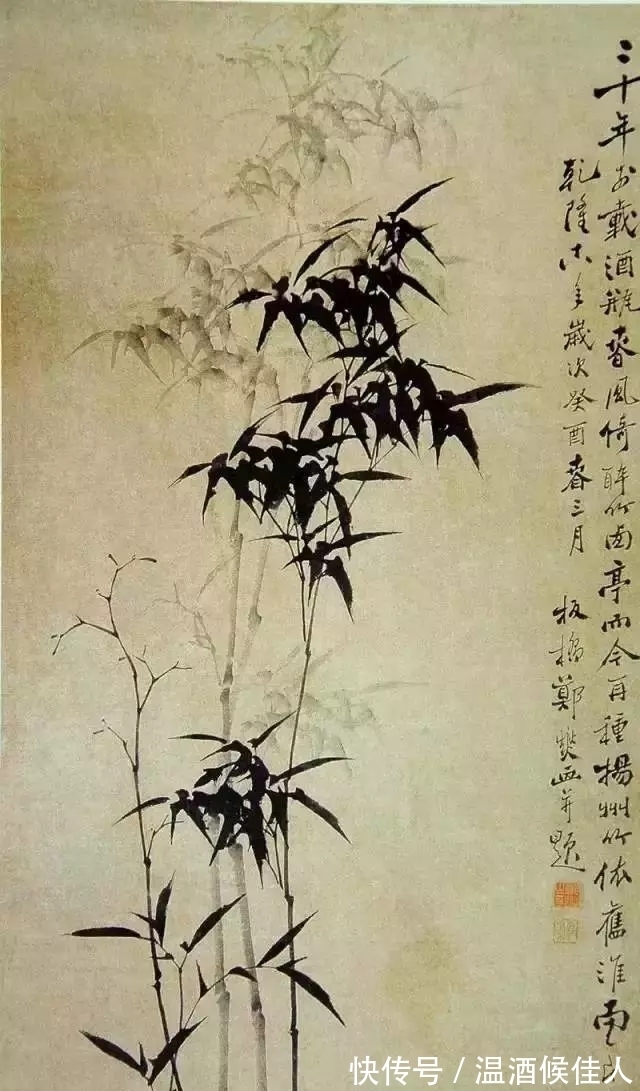 三十年前載酒瓶春風倚醉竹西亭而今再種揚州竹依舊淮南
乾隆十八年歲次癸酉春三月
板橋鄭燮画并題
快传号 / 温酒候佳人